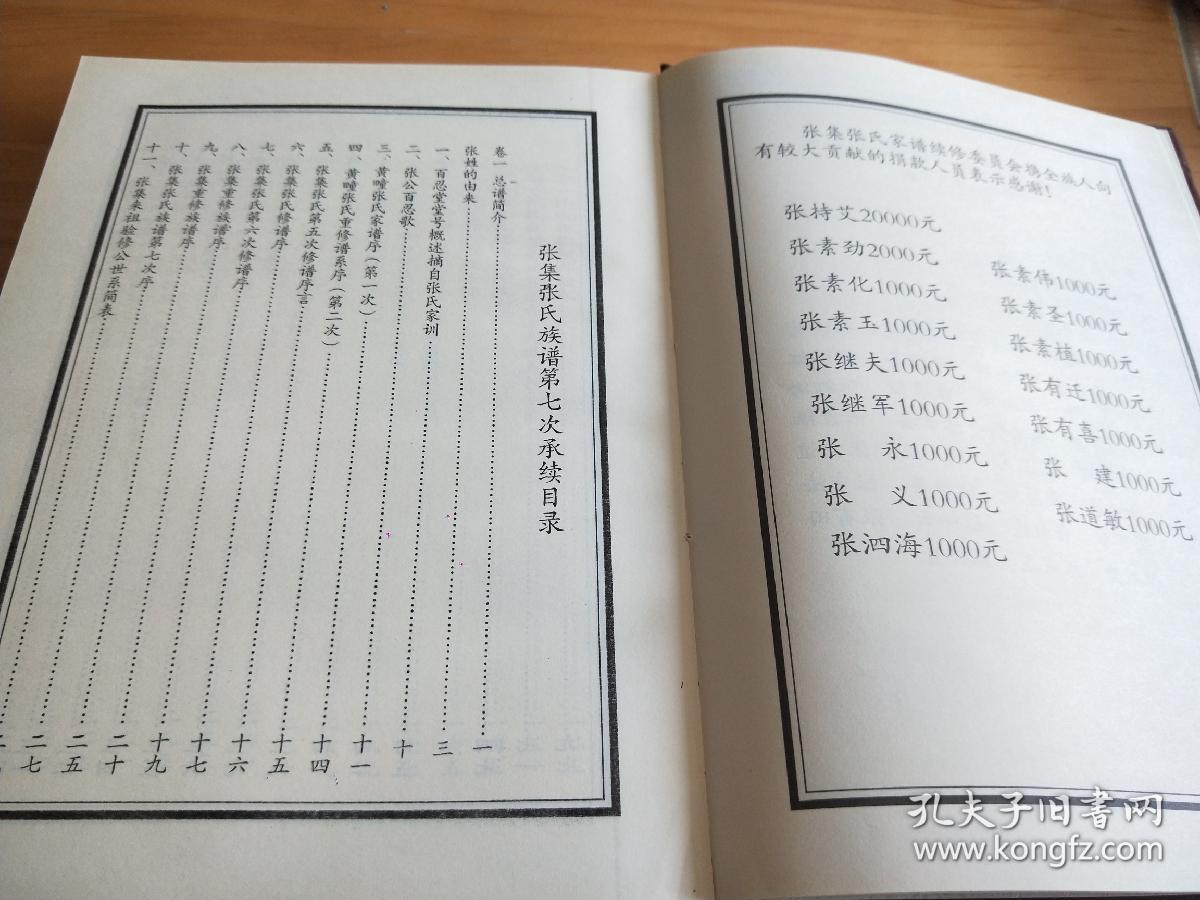 张集张氏族谱第七次承续目录
卷一 总谱简介……一
张姓的由来……三
一、百忍堂堂号概述摘自张氏家训……十
二、张公百忍歌……十一
三、黄疃张氏家谱序（第一次）……十四
四、黄疃张氏重修谱系序（第二次）……十五
五、张集张氏第五次修谱序言……十六
六、张集张氏修谱序……十七
七、张集张氏第六次修谱序……十九
八、张集重修族谱序……二十
九、张集重修族谱序……二五
十、张集张氏族谱第七次序……二七
十一、张集来祖验修公世系简表……
张集张氏家谱续修委员会携全族人向
有较大贡献的捐款人员表示感谢！
张持艾20000元
张素劲2000元
张素化1000元
张素玉1000元
张继夫1000元
张继军1000元
张 永1000元
张 义1000元
张泗海1000元
张素伟1000元
张素圣1000元
张素植1000元
张有迁1000元
张有喜1000元
张 建1000元
张道敏1000元
孔夫子旧书网
www.kongfz.com